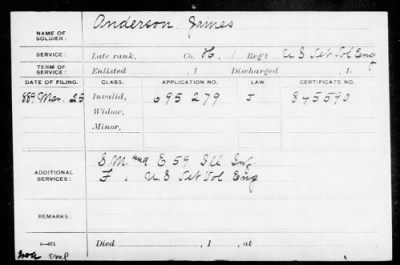 Anderson James
NAME OF SOLDIER:
SERVICE: Late rank, Co. H, 1 Reg't U S Vet Vol Eng
TERM OF SERVICE: Enlisted , 1 Discharged , 1
DATE OF FILING. CLASS. APPLICATION NO. LAW. CERTIFICATE NO.
889 Mar. 25 Invalid, 695279 J 845590
Widow,
Minor,
ADDITIONAL SERVICES: S.M. and E 59 Ill Inf.
F 1 U.S. Vet Vol Eng
REMARKS:
Died , 1 , at